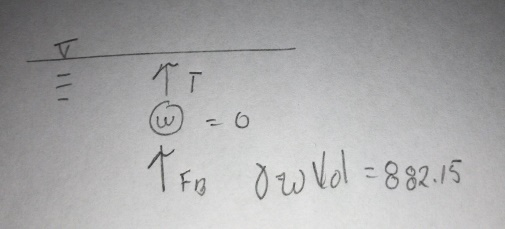 ↑ T
W = 0
↑ FB γw Vol = 882.15